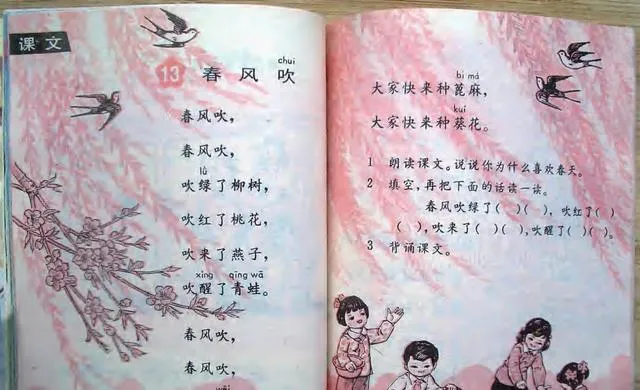 课文
chuī
13 春风吹
春风吹，
春风吹，
lǜ
吹绿了柳树，
吹红了桃花，
吹来了燕子，
xǐng qīng wā
吹醒了青蛙。
春风吹，
春风吹，
bì má
大家快来种蓖麻，
kuí
大家快来种葵花。
1 朗读课文。说说你为什么喜欢春天。
2 填空，再把下面的话读一读。
春风吹绿了（ ）（ ），吹红了（ ）
（ ），吹来了（ ）（ ），吹醒了（ ）（ ）。
3 背诵课文。